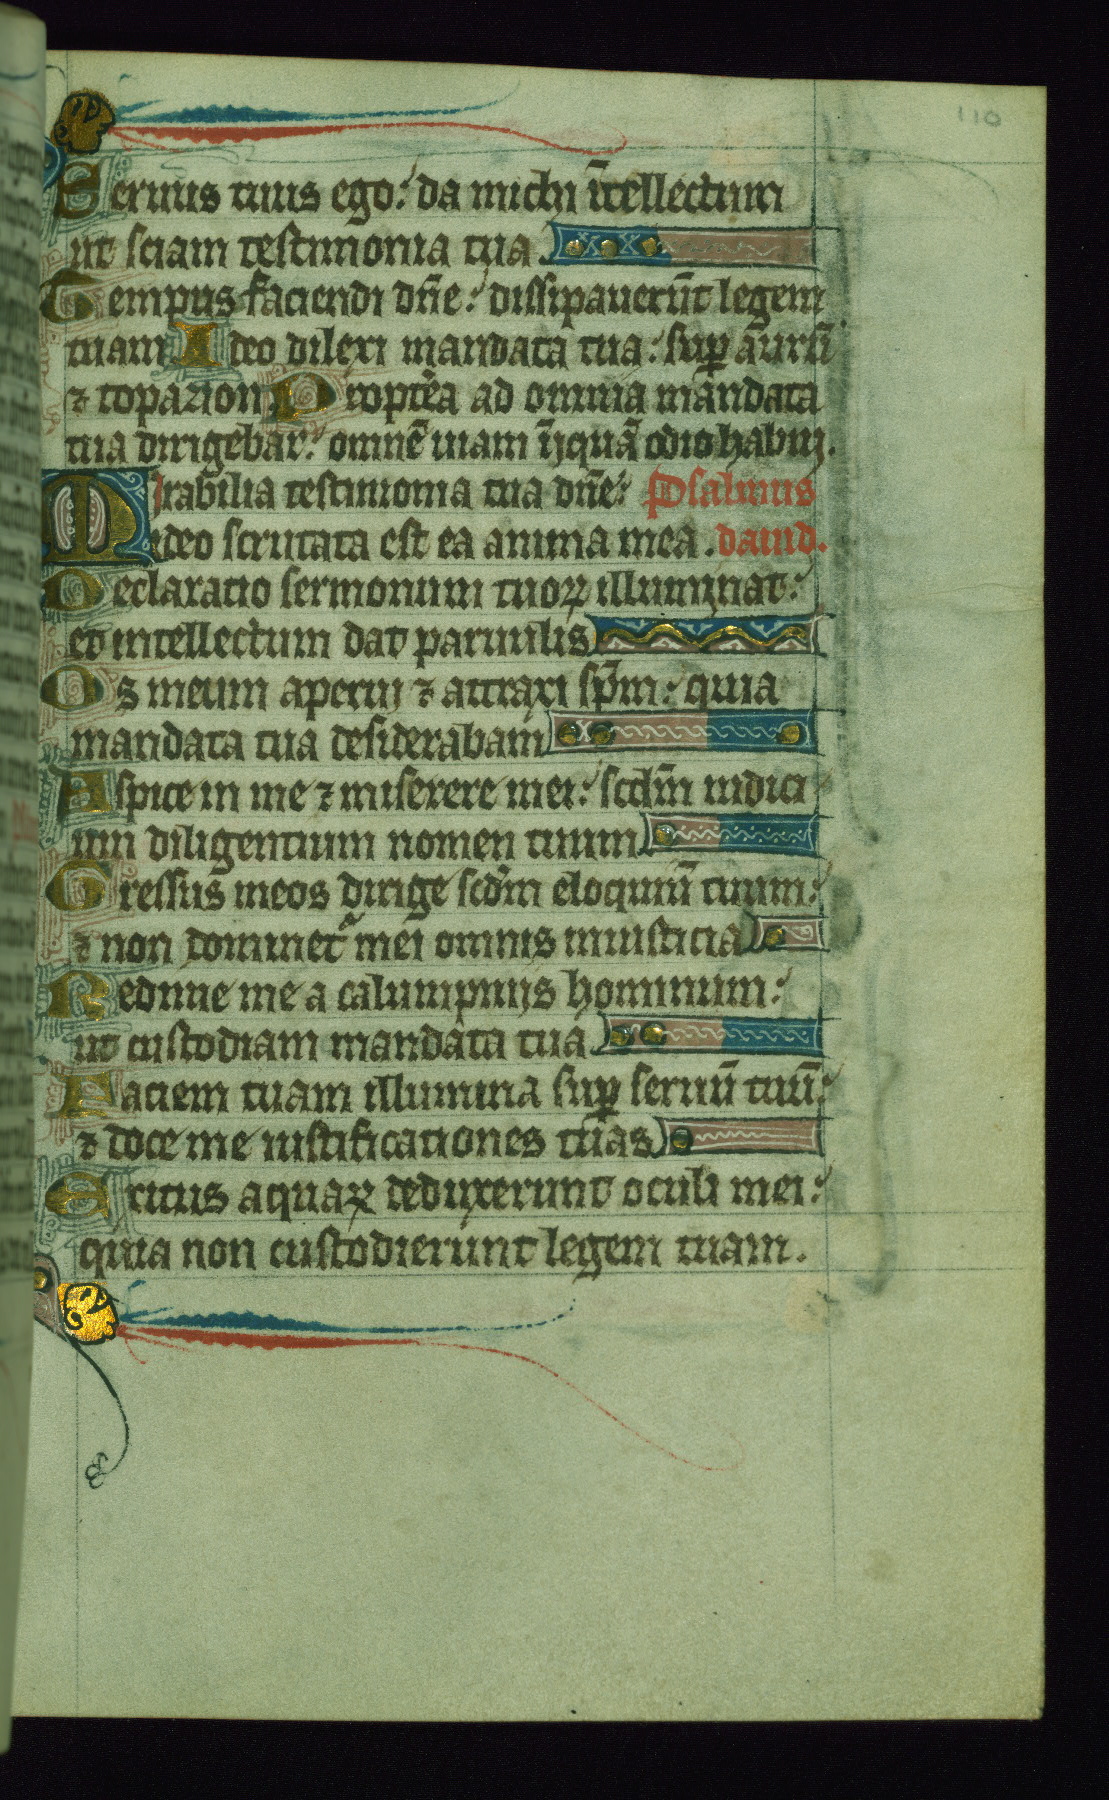 110
Seruus tuus ego: da michi ītellectum
ut sciam testimonia tua.
Tempus faciendi dn̄e: dissipauerūt legem
tuam Ideo dilexi mandata tua: suꝑ aurū
⁊ topazion. Propt̄ea ad omnia mandata
tua dirigebar: omnē uiam īiquā odio habui.
Mirabilia testimonia tua dn̄e: Psalmus
ideo scrutata est ea anima mea. dauid.
Declaratio sermonum tuoꝝ illuminat:
et intellectum dat paruulis
Os meum aperui ⁊ attraxi sp̄m: quia
mandata tua desiderabam
Aspice in me ⁊ miserere mei: scd̄m iudici
um diligentium nomen tuum
Gressus meos dirige scd̄m eloquiū tuum:
⁊ non dominet᷑ mei omnis iniusticia
Redime me a calumpniis hominum:
ut custodiam mandata tua
Faciem tuam illumina suꝑ seruū tuū:
⁊ doce me iustificationes tuas
Exitus aquaꝝ deduxerunt oculi mei:
quia non custodierunt legem tuam.